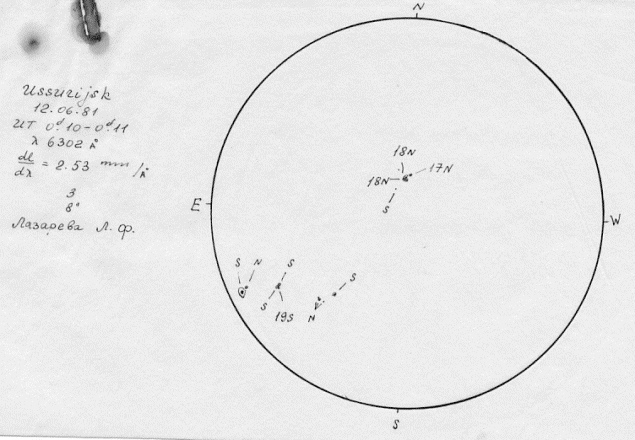 N
Ussurijsk
12.06.81
UT 0ᵈ.10-0ᵈ.11
λ 6302 Å
dl/dλ = 2.53 mm/Å
3
8"
Лазарева Л. Ф.
18N
18N 17N
S
E
W
S N S
S
S 19S
N
S